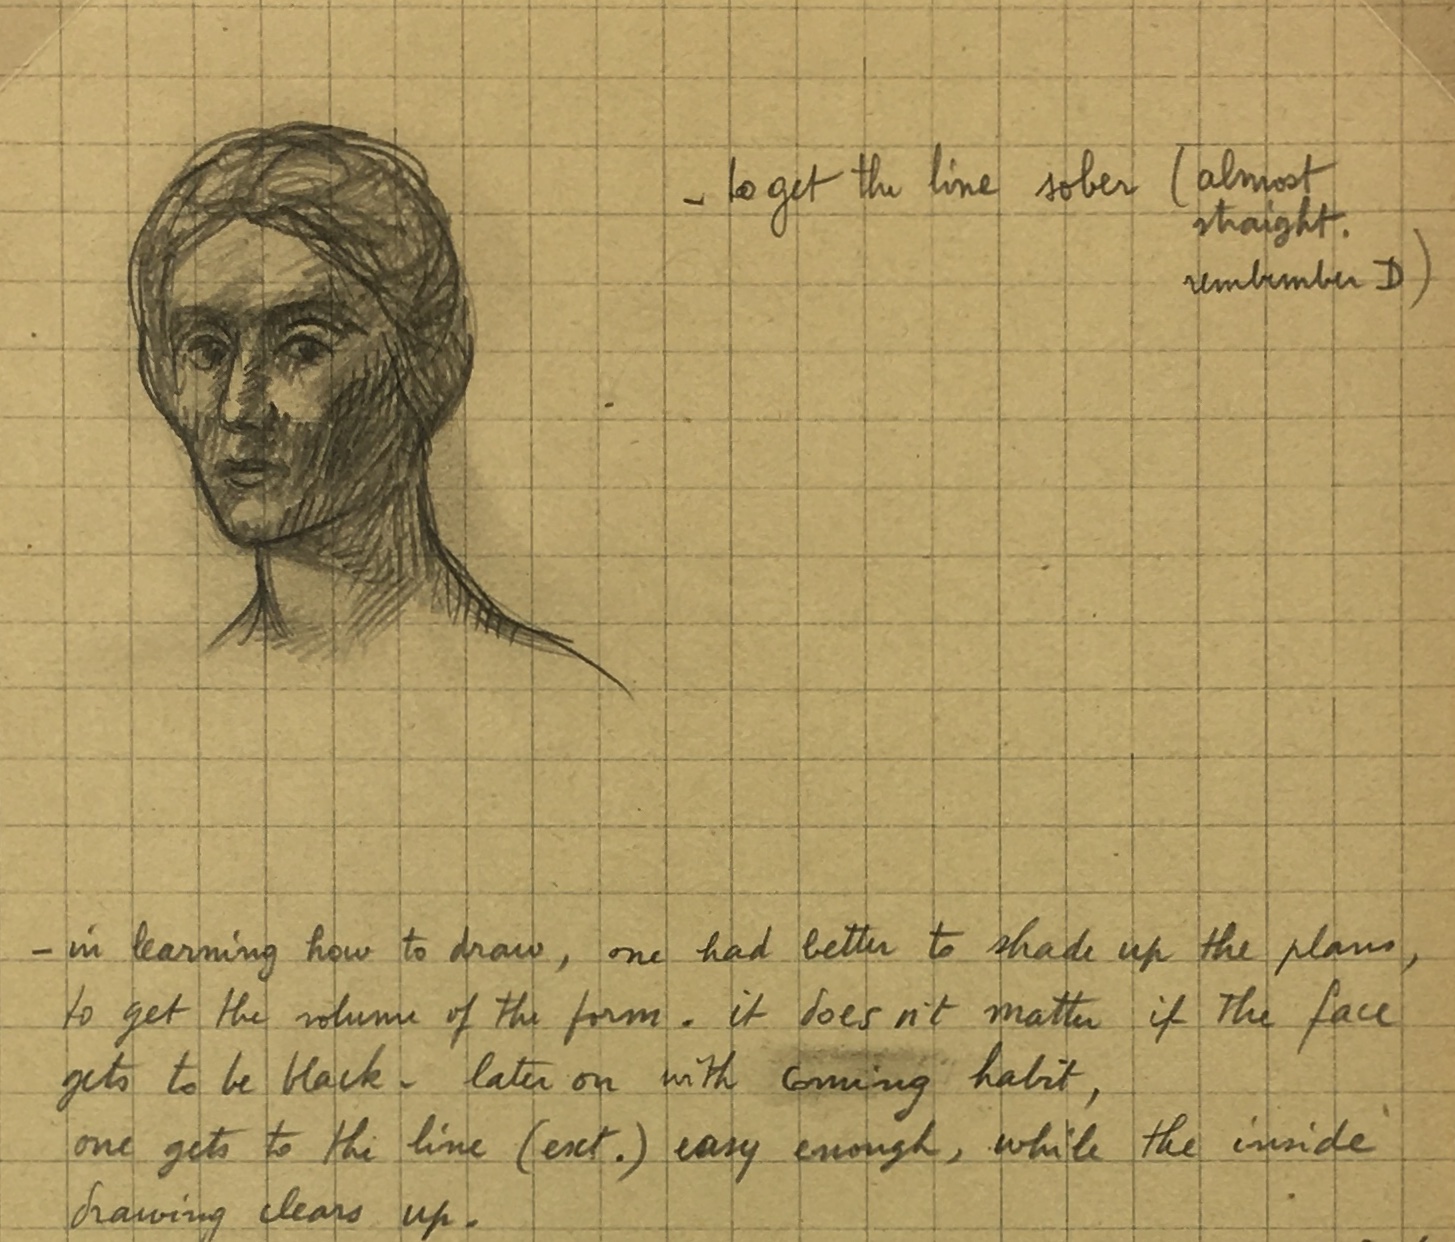 - to get the line sober (almost
straight.
rembember D)
- in learning how to draw, one had better to shade up the plans,
to get the volume of the form. it does n't matter if the face
gets to be black - later on with coming habit,
one gets to the line (ext.) easy enough, while the inside
drawing clears up.